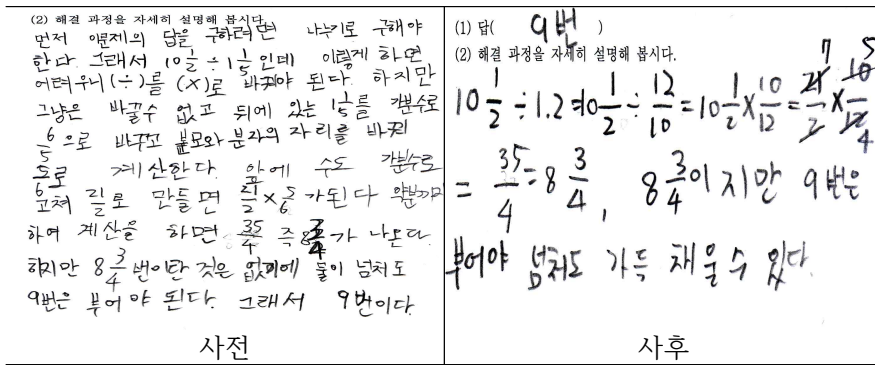 (2) 해결 과정을 자세히 설명해 봅시다
먼저 이문제의 답을 구하려면 나누기로 구해야
한다. 그래서 10 1/2 ÷ 1 1/5 인데 이렇게 하면
어려우니 (÷)를 (×)로 바꿔야 된다. 하지만
그냥은 바꿀수 없고 뒤에 있는 1 1/5를 가분수로
6/5 으로 바꾸고 분모와 분자의 자리를 바꿔
5/6로 계산한다. 앞에 수도 가분수로
고쳐 만들면 21/2 × 5/6 가된다 약분까지
하여 계산을 하면 35/4 즉 8 3/4가 나온다.
하지만 8 3/4 번이란 것은 없기에 물이 넘쳐도
9번은 부어야 된다. 그래서 9번이다.
사전
(1) 답( 9번 )
(2) 해결 과정을 자세히 설명해 봅시다.
10 1/2 ÷ 1.2 = 10 1/2 ÷ 12/10 = 10 1/2 × 10/12 = 21/2 × 10/12 7 5 4
= 35/4 = 8 3/4, 8 3/4이지만 9번은
부어야 넘쳐도 가득 채울수 있다.
사후